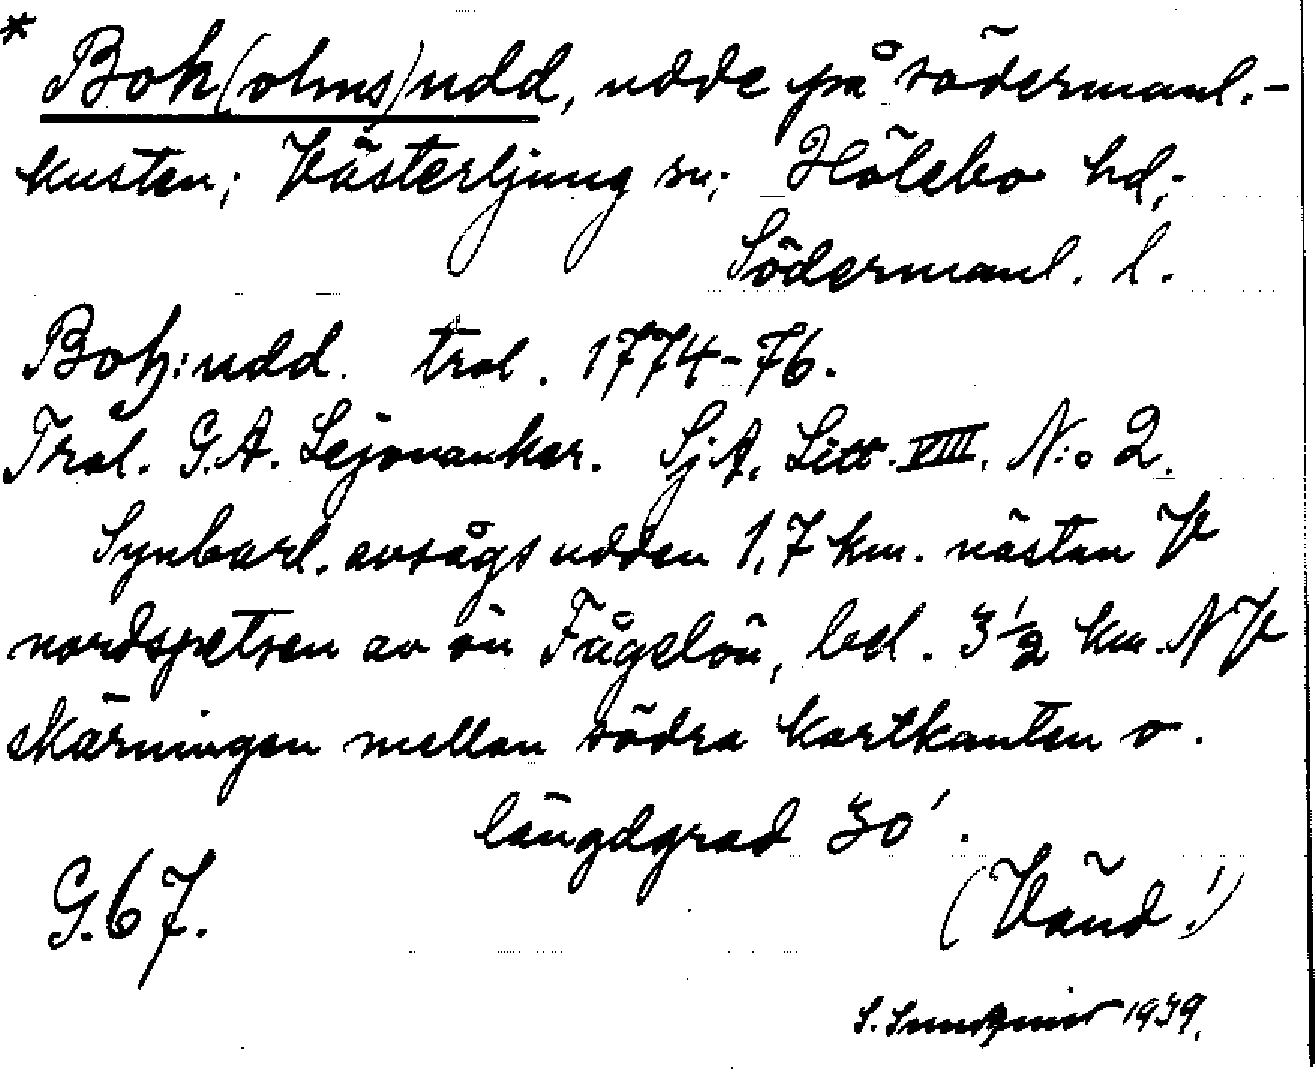 * Bok(olms)udd, udde på södermanl.-
kusten; Västerljung sn; Hölebo hd;
Södermanl. l.
Boh:udd. trol. 1774-76.
Trol. G.A. Lejonankar. SjA. Litt. VIII. N:o 2.
Synbarl. avsågs udden 1,7 km. nästan V
nordspetsen av ön Fågelön, bel. 3 1/2 km. NV
skärningen mellan södra kartkanten o.
längdgrad 30′.
G.67. (Vänd!)
1939.